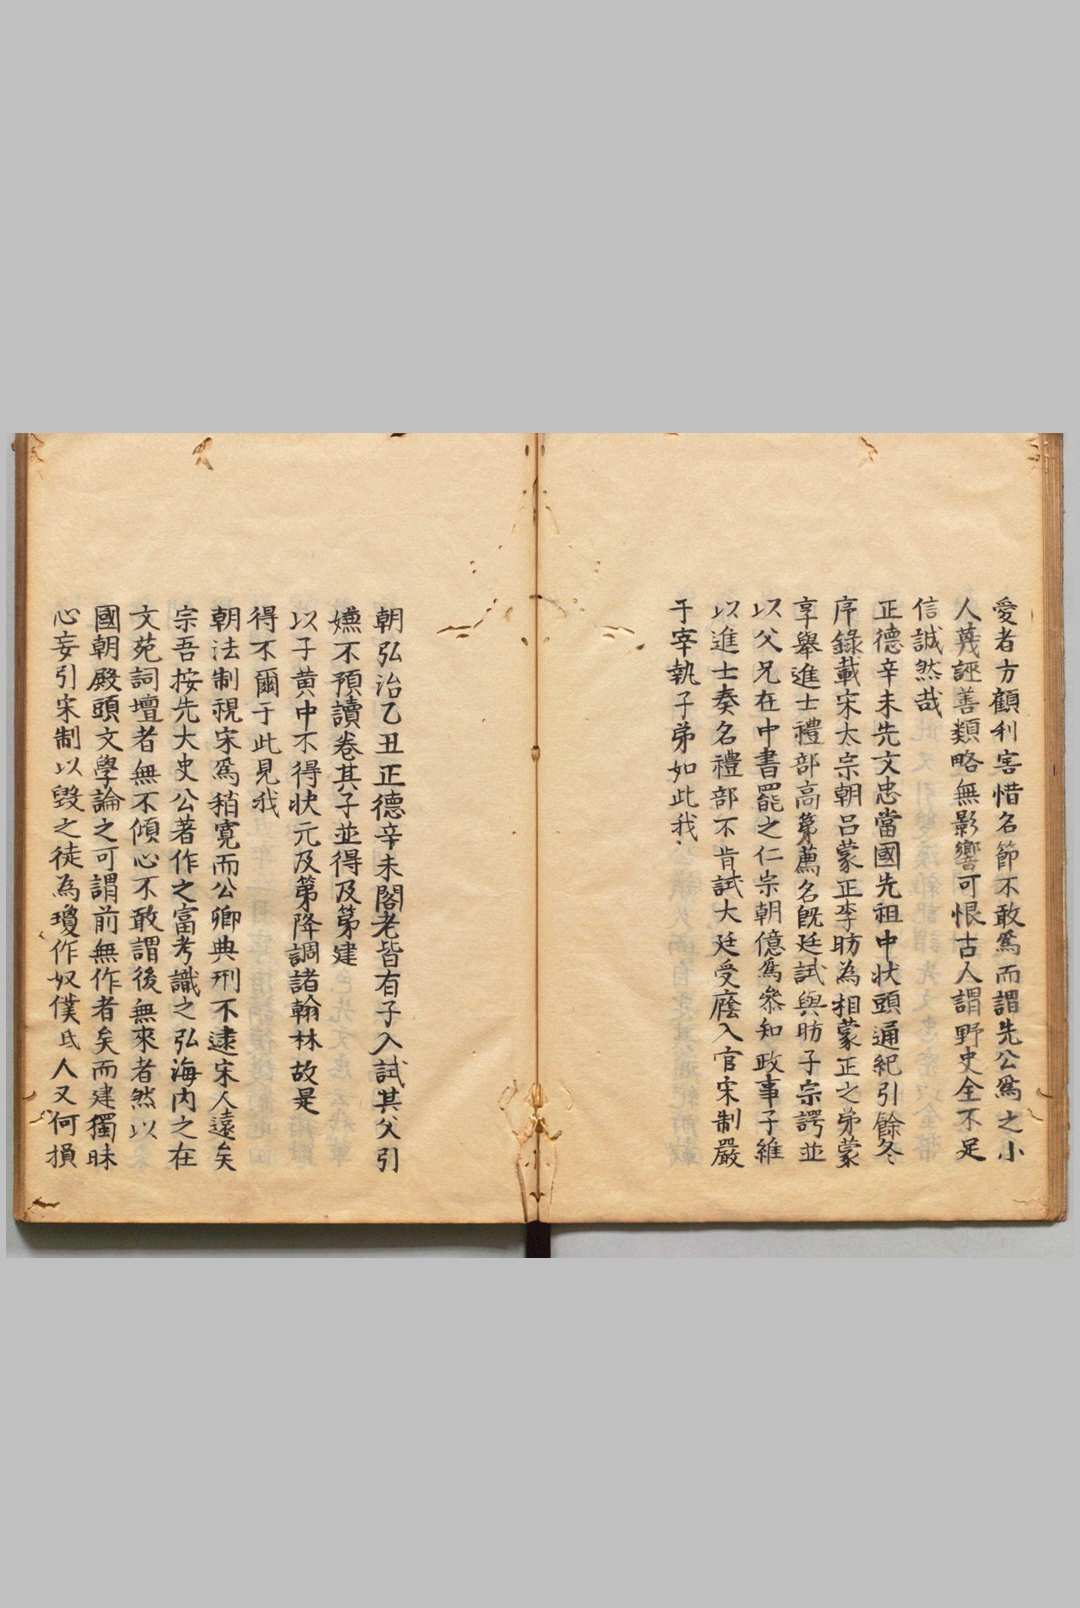 愛者方顧利害惜名節不敢爲而謂先公爲之小
人羙誣善類略無影響可恨古人謂野史全不足
信誠然哉
正德辛未先文忠當國先祖中狀頭通紀引餘冬
序錄載宋太宗朝呂蒙正李昉為相蒙正之弟蒙
亨舉進士禮部高第薦名旣廷試與昉子宗諤並
以父兄在中書罷之仁宗朝億爲叅知政事子維
以進士奏名禮部不肯試大廷受廕入官宋制嚴
于宰執子弟如此我
朝弘治乙丑正德辛未閣老皆有子入試其父引
嫌不預讀卷其子並得及第建
以子黄中不得状元及第降調諸翰林故是
得不爾于此見我
朝法制視宋爲稍寛而公卿典刑不逮宋人遠矣
宗吾按先大史公著作之富考識之弘海内之在
文苑詞壇者無不傾心不敢謂後無來者然以
國朝殿頭文學論之可謂前無作者矣而建獨昧
心妄引宋制以毀之徒為瓊作奴僕氐人又何損